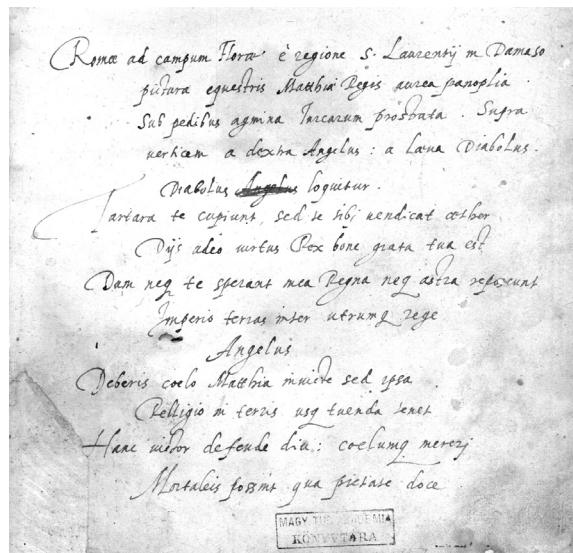 Romæ ad campum Floræ è regione S. Laurentij in Damaso
pictura equestris Matthiæ Regis aurea panoplia
Sub pedibus agmina Turcarum prostrata. Supra
verticem a dextra Angelus: a læua Diabolus.
Diabolus Angelus loquitur.
Tartara te cupiunt, sed te sibi uendicat æther
Dijs adeo uirtus Rex bone grata tua est
Nam neq te sperant mea Regna neq astra reposcunt
Imperio terras inter utrumq rege
Angelus
Deberis coelo Matthia inuicte sed ipsa
Relligio in terris usq tuenda tenet
Hanc uictor defende diu: coelumq mereri
Mortaleis possint qua pietate doce
MAGY. TUD. AKADEMIA
KÖNYVTÁRA